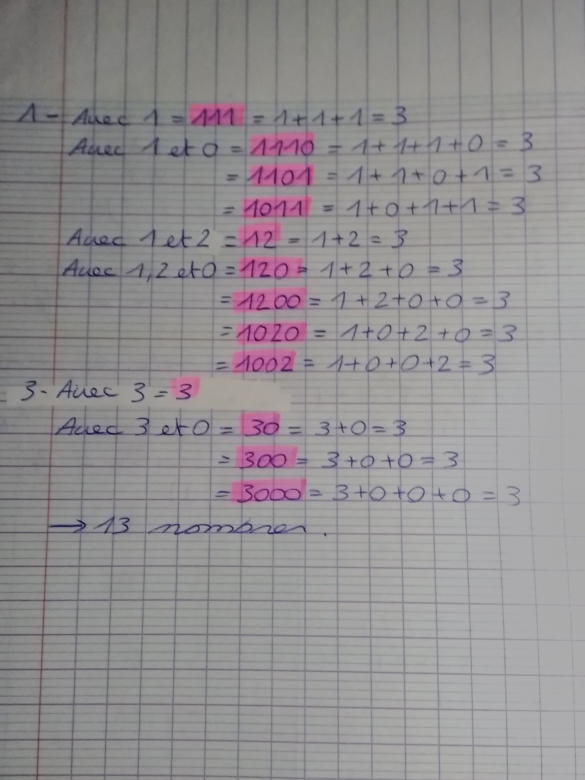 1- Avec 1 = 111 = 1+1+1 = 3
Avec 1 et 0 = 1110 = 1+1+1+0 = 3
= 1101 = 1+1+0+1 = 3
= 1011 = 1+0+1+1 = 3
Avec 1 et 2 = 12 = 1+2 = 3
Avec 1,2 et 0 = 120 = 1+2+0 = 3
= 1200 = 1+2+0+0 = 3
= 1020 = 1+0+2+0 = 3
= 1002 = 1+0+0+2 = 3
3- Avec 3 = 3
Avec 3 et 0 = 30 = 3+0 = 3
= 300 = 3+0+0 = 3
= 3000 = 3+0+0+0 = 3
→ 13 nombres.